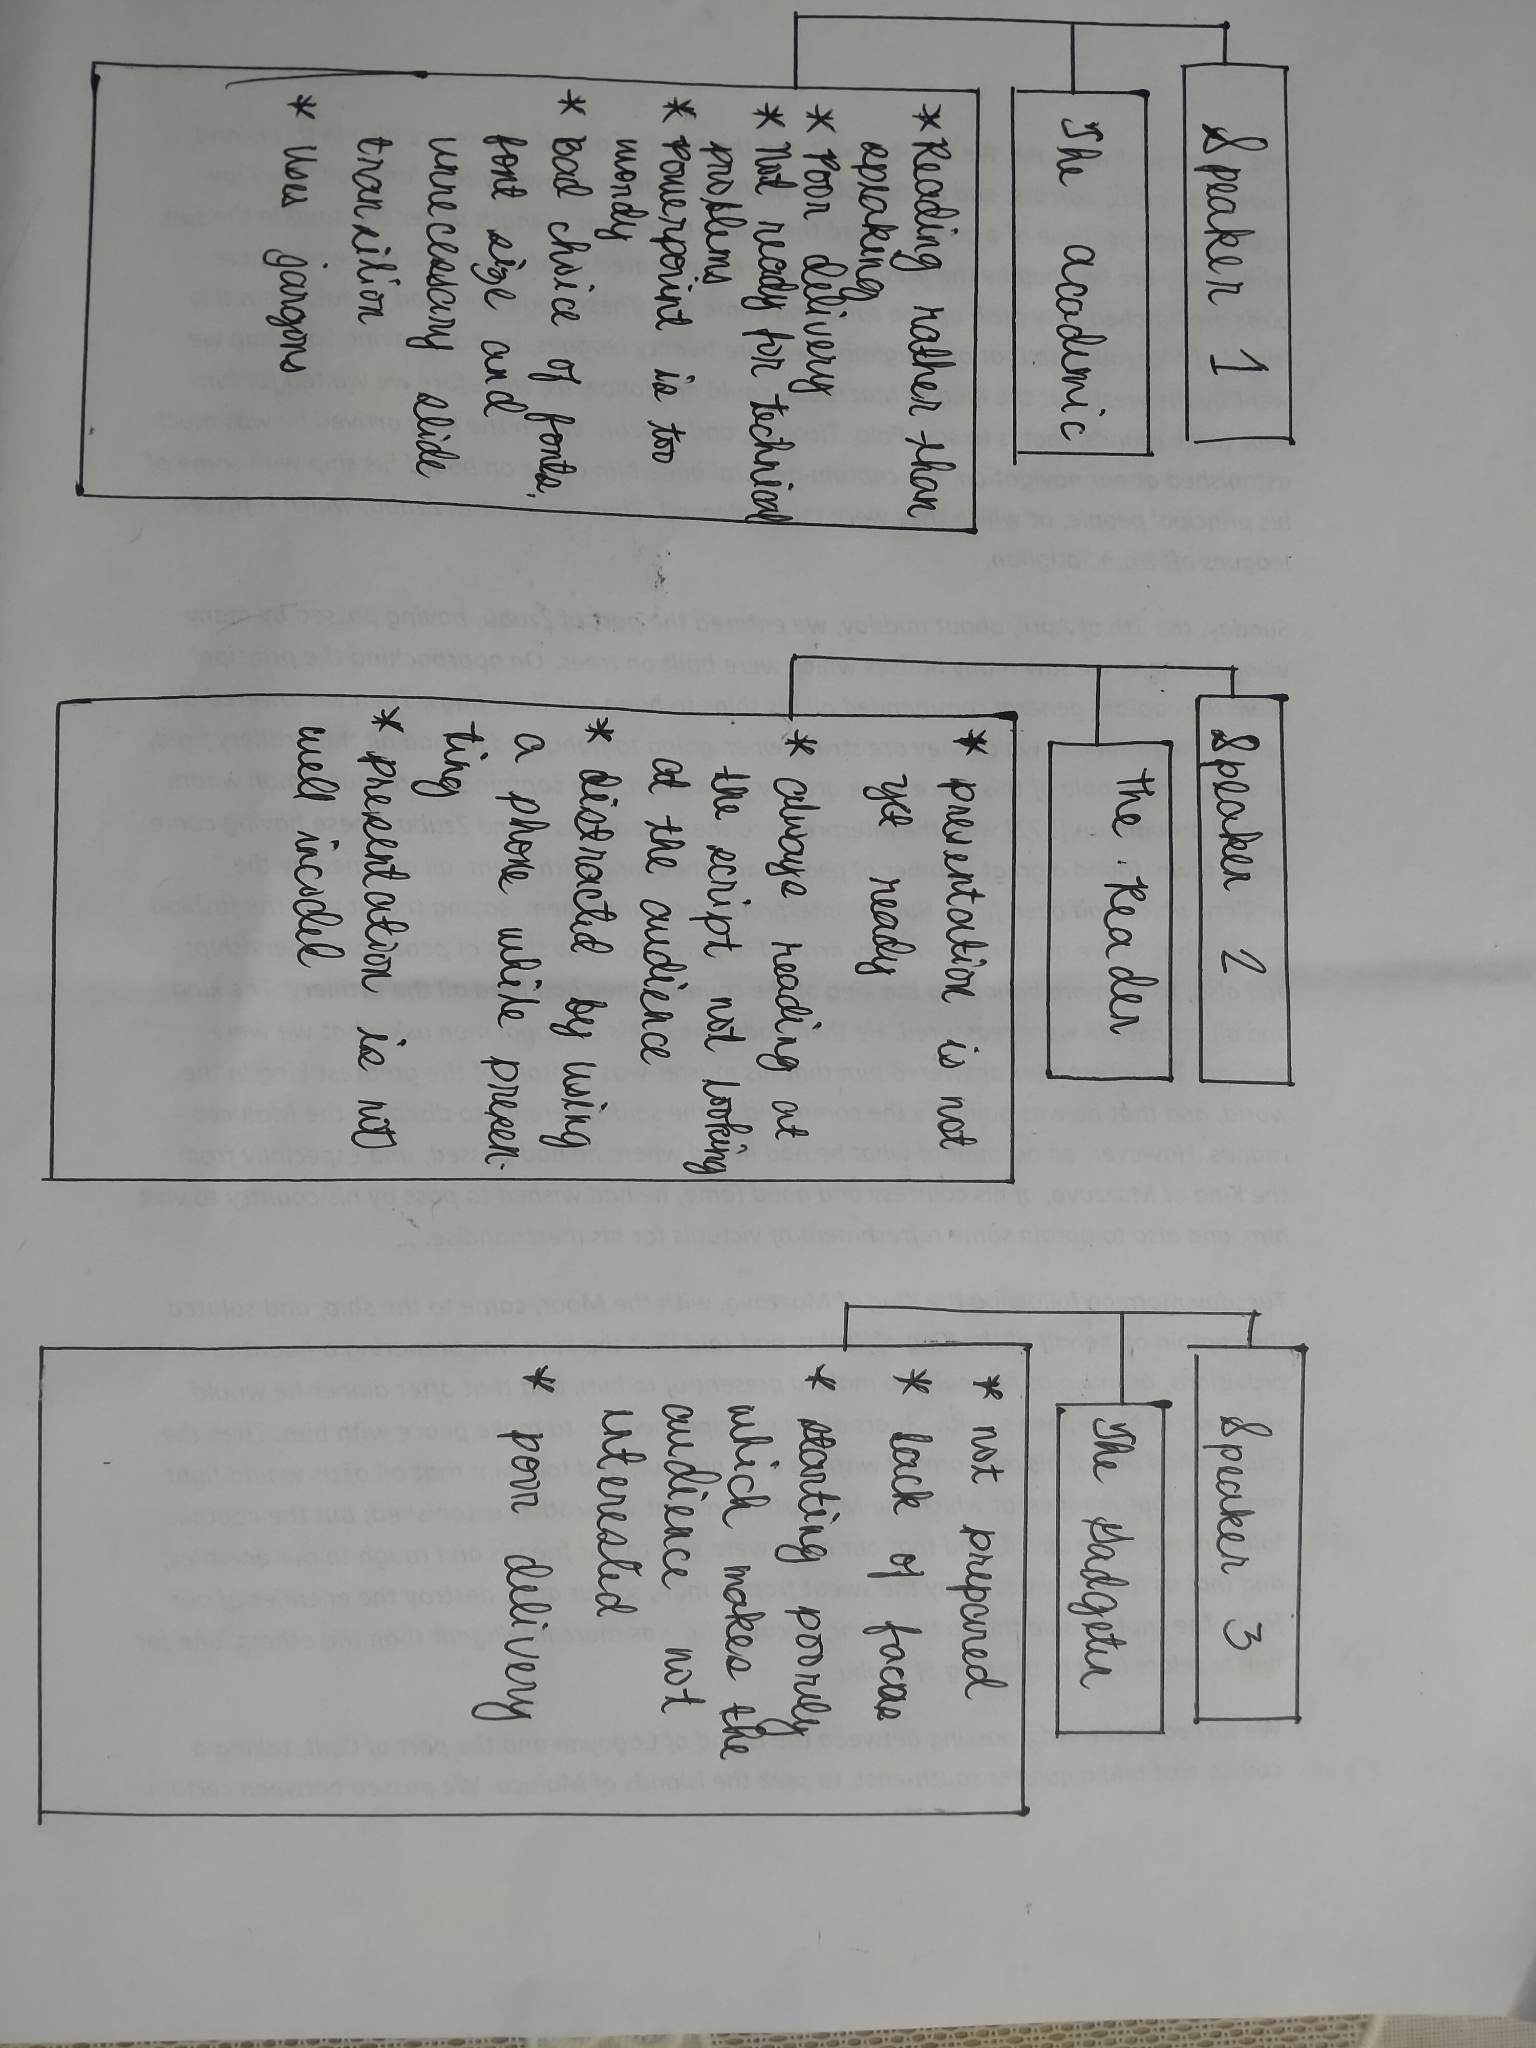 Speaker 1
The academic
* Reading rather than
speaking
* poor delivery
* not ready for technical
problems
* powerpoint is too
wordy
* Bad choice of fonts,
font size and
unnecessary slide
transition
* Uses jargons
Speaker 2
the Reader
* presentation is not
yet ready
* always reading at
the script not looking
at the audience
* distracted by using
a phone while presen-
ting
* presentation is not
well incided
Speaker 3
The Gadgeter
* not prepared
* lack of facas
* starting poorly
which makes the
audience not
interested
* poor delivery